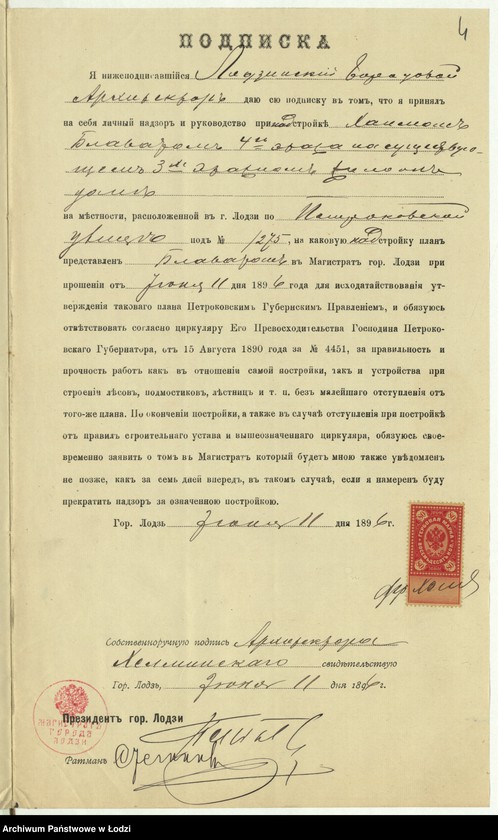 4
ПОДПИСКА
Я нижеподписавшійся Лодзинскій Городовой
Архитекторъ даю сію подписку въ томъ, что я принялъ
на себя личный надзоръ и руководство при надстройкѣ Хаимомъ
Блаватомъ 4го этажа на существую-
щемъ 3хъ этажномъ
домѣ
на мѣстности, расположенной въ г. Лодзи по Петроковской
улицѣ подъ № /275, на каковую надстройку планъ
представленъ Блаватомъ въ Магистратъ гор. Лодзи при
прошеніи отъ Іюня 11 дня 1896 года для исходатайствованія ут-
вержденія таковаго плана Петроковскимъ Губернскимъ Правленіемъ, и обязуюсь
отвѣтствовать согласно циркуляру Его Превосходительства Господина Петроко-
вскаго Губернатора, отъ 15 Августа 1890 года за № 4451, за правильность и
прочность работъ какъ въ отношеніи самой постройки, такъ и устройства при
строеніи лѣсовъ, подмостиковъ, лѣстницъ и т. п. безъ малейшаго отступленія отъ
того-же плана. По окончаніи постройки, а также въ случаѣ отступленія при постройкѣ
отъ правилъ строительнаго устава и вышеозначеннаго циркуляра, обязуюсь свое-
временно заявить о томъ въ Магистратъ который будетъ мною также увѣдомленъ
не позже, какъ за семь дней впередъ, въ такомъ случаѣ, если я намѣренъ буду
прекратить надзоръ за означенною постройкою.
Гор. Лодзь Іюня 11 дня 1896 г.
Собственноручную подпись Архитектора
Хелминскаго свидѣтельствую
Гор. Лодзь, Іюня 11 дня 1896 г.
МАГИСТРАТЪ
ГОРОДА
ЛОДЗИ
Президентъ гор. Лодзи
Ратманъ
Archiwum Państwowe w Łodzi